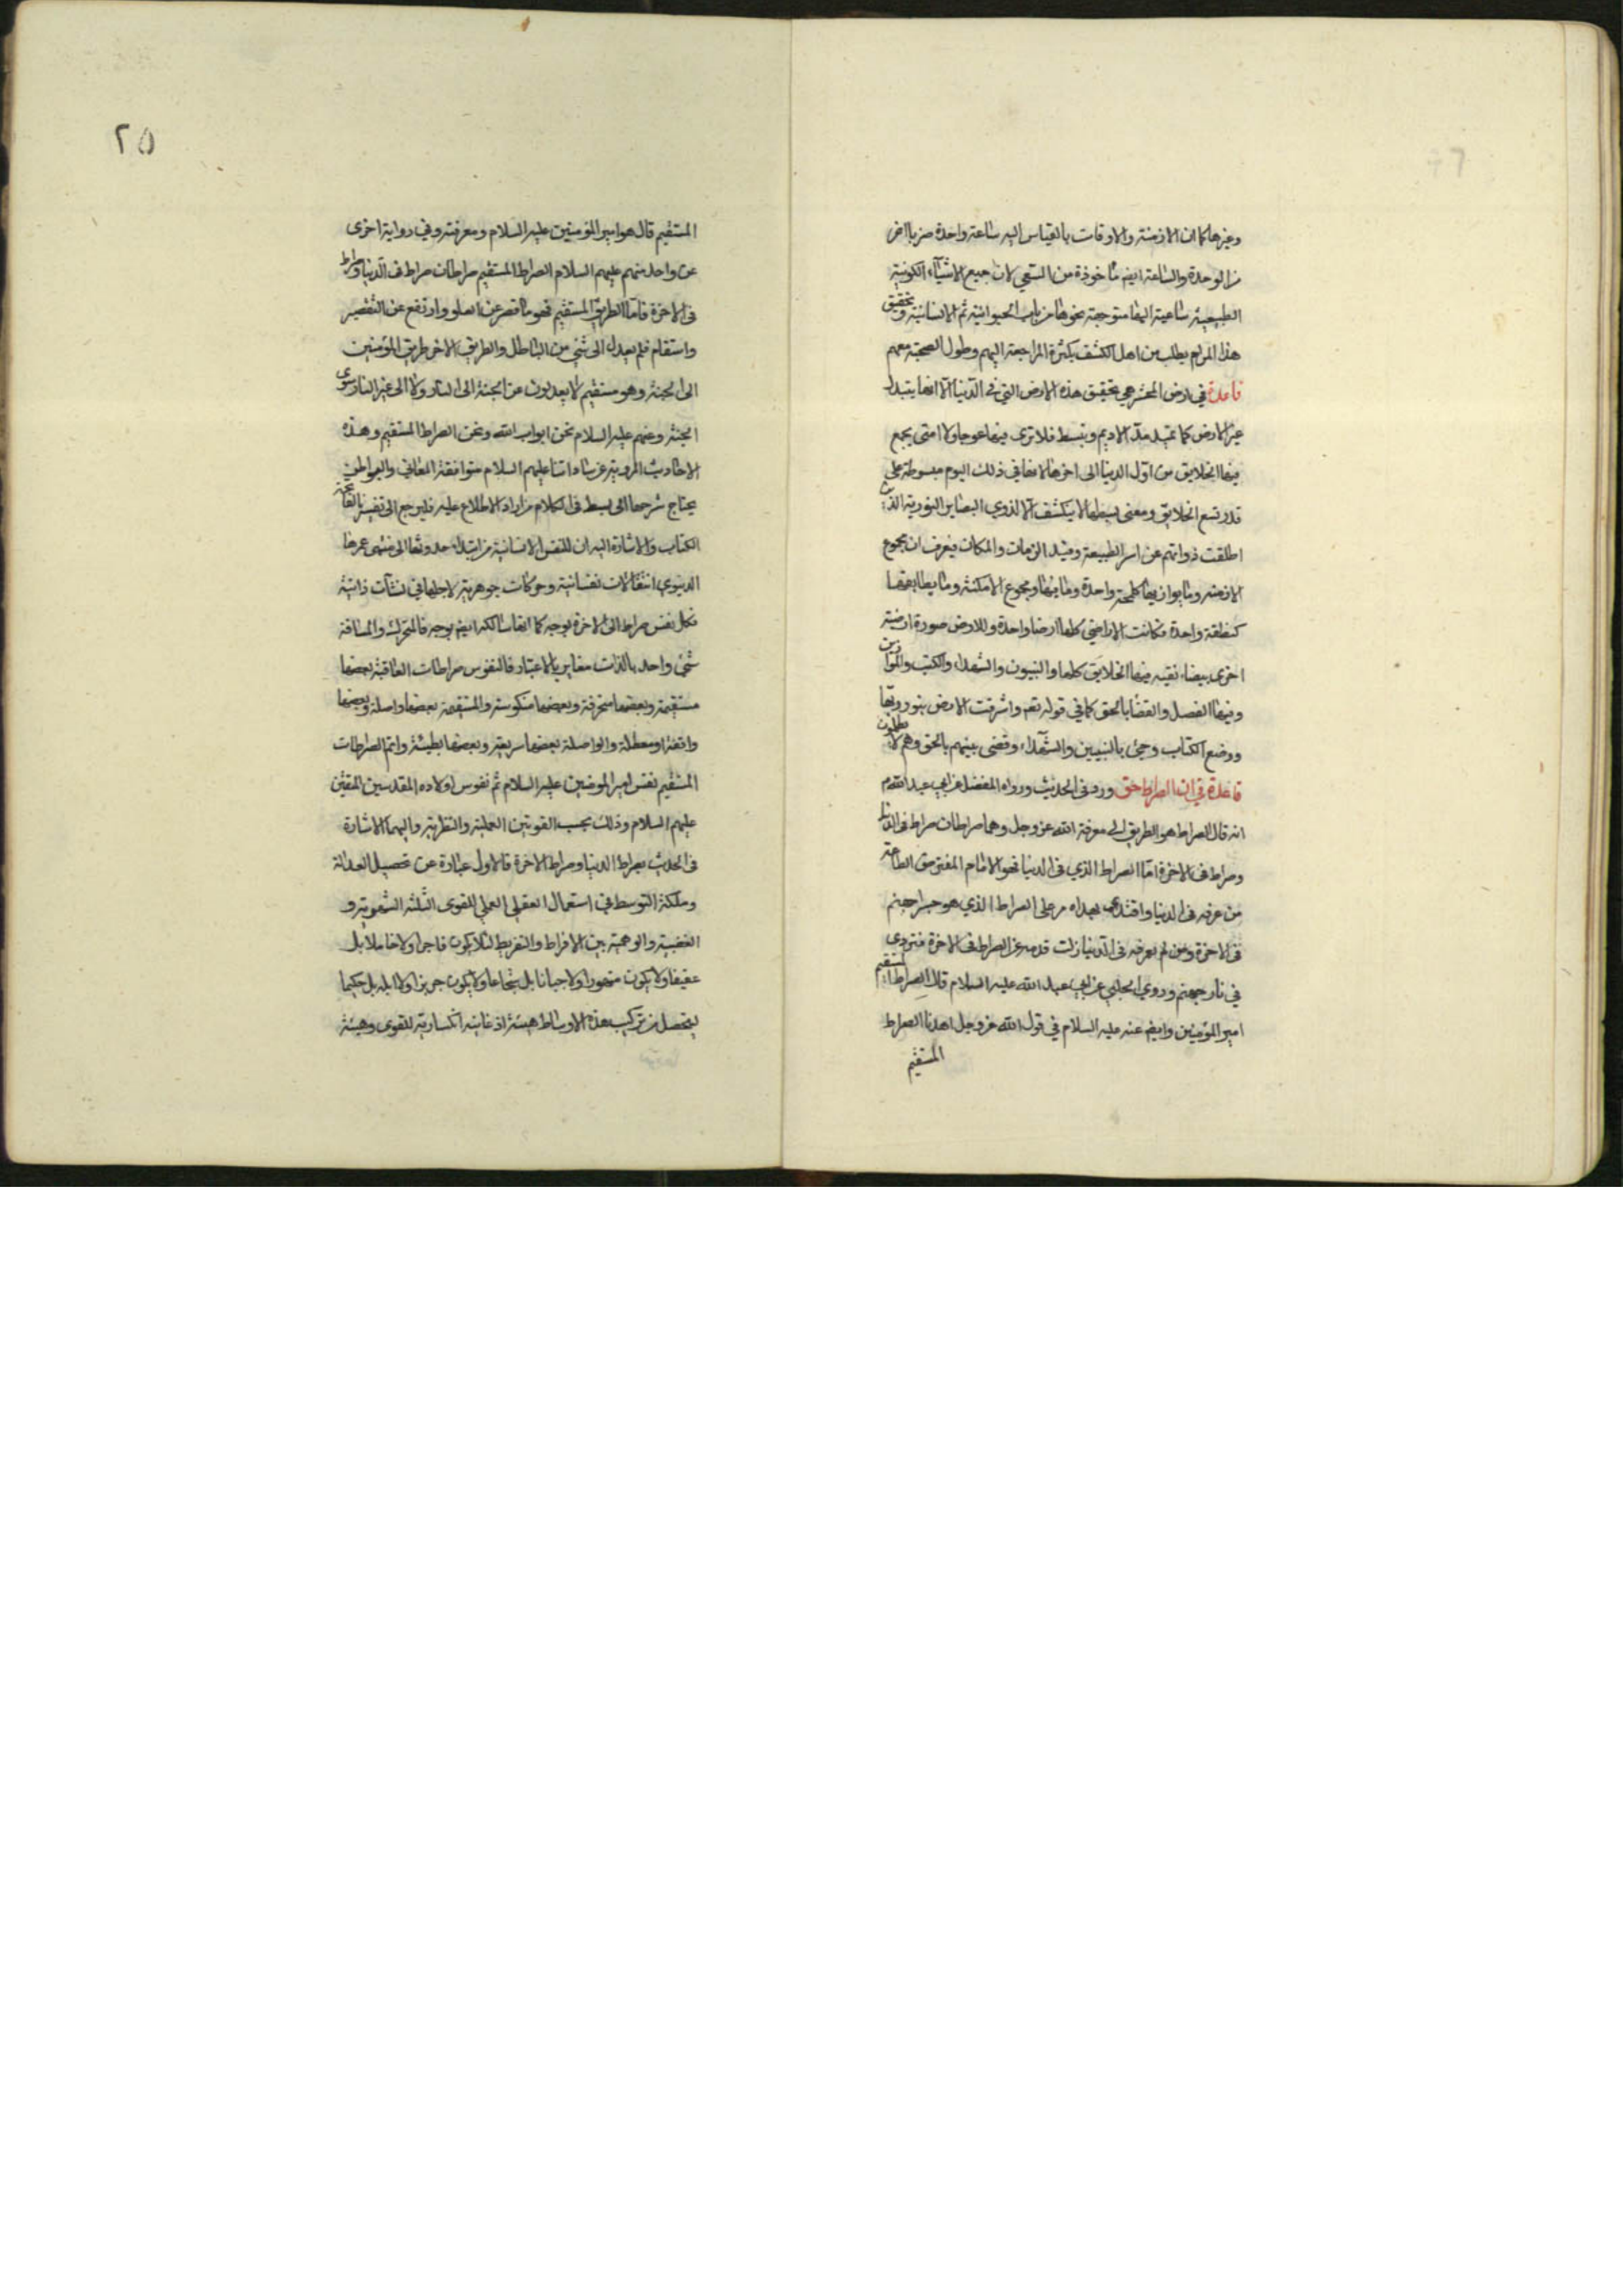 وغيرها كما ان الازمنة والاوقات بالقياس اليه ساعة واحدة ضربا اخر
من الوحدة والساعة ايضم مأخوذة من السعي لان جميع الاشياء الكونية
الطبيعية ساعية اليها متوجهة نحوها من باب الحيوانية ثم الانسانية وتحقيق
هذا المرام يطلب من اهل الكشف بكثرة المراجعة اليهم وطول الصحبة معهم
قاعدة في ارض المحشر هي تحقيق هذه الارض التي في الدنيا الا انها يتبدل
غير الارض كما تمد مد الاديم وتبسط فلا ترى فيها عوجا ولا امتى يجمع
فيها الخلايق من اول الدنيا الى اخرها لانها في ذلك اليوم مبسوطة على
قدر تسع الخلايق ومعنى بسطها لا ينكشف الا لذوي البصاير النورية الذين
اطلقت ذواتهم عن اسر الطبيعة وقيد الزمان والمكان فيعرف ان مجموع
الازمنة وما يوازيها كلمحة واحدة وما فيها ومجموع الامكنة وما يطابقها
كنقطة واحدة فكانت الاراضي كلها ارضا واحدة وللارض صورة ارضية
اخرى بيضاء نقية فيها الخلايق كلها والنبيون والشهداء والكتب والموازين
وفيها الفصل والقضا بالحق كما في قوله تعم واشرقت الارض بنور ربها
ووضع الكتاب وجئ بالنبيين والشهداء وقضى بينهم بالحق وهم لا يظلمون
قاعدة في ان الصراط حق ورد في الحديث ورواه المفضل عن ابي عبد الله م
انه قال الصراط هو الطريق الى معرفة الله عز وجل وهما صراطان صراط في الدنيا
وصراط في الاخرة اما الصراط الذي في الدنيا فهو الامام المفترض الطاعة
من عرفه في الدنيا واقتدى بهداه مر على الصراط الذي هو جسر جهنم
في الاخرة ومن لم يعرفه في الدنيا زلت قدمه عن الصراط في الاخرة فتردى
في نار جهنم وروي الحلبي عن ابي عبد الله عليه السلام قال الصراط المستقيم
امير المؤمنين وايضم عنه عليه السلام في قول الله عز وجل اهدنا الصراط
المستقيم
٢٥
المستقيم قال هو امير المؤمنين عليه السلام ومعرفته وفي رواية اخرى
عن واحد منهم عليهم السلام الصراط المستقيم صراطان صراط في الدنيا وصراط
في الاخرة فاما الطريق المستقيم فهو ما قصر عن العلو وارتفع عن التقصير
واستقام فلم يعدل الى شئ من الباطل والطريق الاخر طريق المؤمنين
الى الجنة وهو مستقيم لا يعدلون عن الجنة الى النار ولا الى غير النار سوى
الجنة وعنهم عليه السلام نحن ابواب الله ونحن الصراط المستقيم وهذه
الاحاديث المروية عن ساداتنا عليهم السلام متوافقة المعاني والبواطن
يحتاج شرحها الى بسط في الكلام من اراد الاطلاع عليه فليرجع الى تفسيرنا لفاتحة
الكتاب والاشارة اليه ان للنفس الانسانية من ابتداء حدوثها الى منتهى عمرها
الدنيوي انتقالات نفسانية وحركات جوهرية لاجلها في نشآت ذاتية
فكل نفس صراط الى الاخرة بوجه كما انها سالكه ايضم بوجه فالمتحرك والمسافة
شئ واحد بالذات مغاير بالاعتبار فالنفوس صراطات العاقبة بعضها
مستقيمة وبعضها منحرفة وبعضها منكوسة والمستقيمة بعضها واصلة وبعضها
واقفة او معطلة والواصلة بعضها سريعة وبعضها بطيئة واتم الصراطات
المستقيم نفس امير المومنين عليه السلام ثم نفوس اولاده المقدسين المتقين
عليهم السلام وذلك بحسب القوتين العملية والنظرية واليهما الاشارة
في الحديث بصراط الدنيا وصراط الاخرة فالاول عبارة عن تحصيل العدالة
وملكة التوسط في استعمال العقل العملي للقوى الثلثه الشهوية و
الغضبية والوهمية بين الافراط والتفريط لئلا يكون فاجرا ولا خاملا بل
عفيفا ولا يكون متهورا ولا جبانا بل شجاعا ولا يكون جربزا ولا ابله بل حكيما
ليحصل من تركيب هذه الاوساط هيئة اذعانيه انكسارية للقوى وهيئة